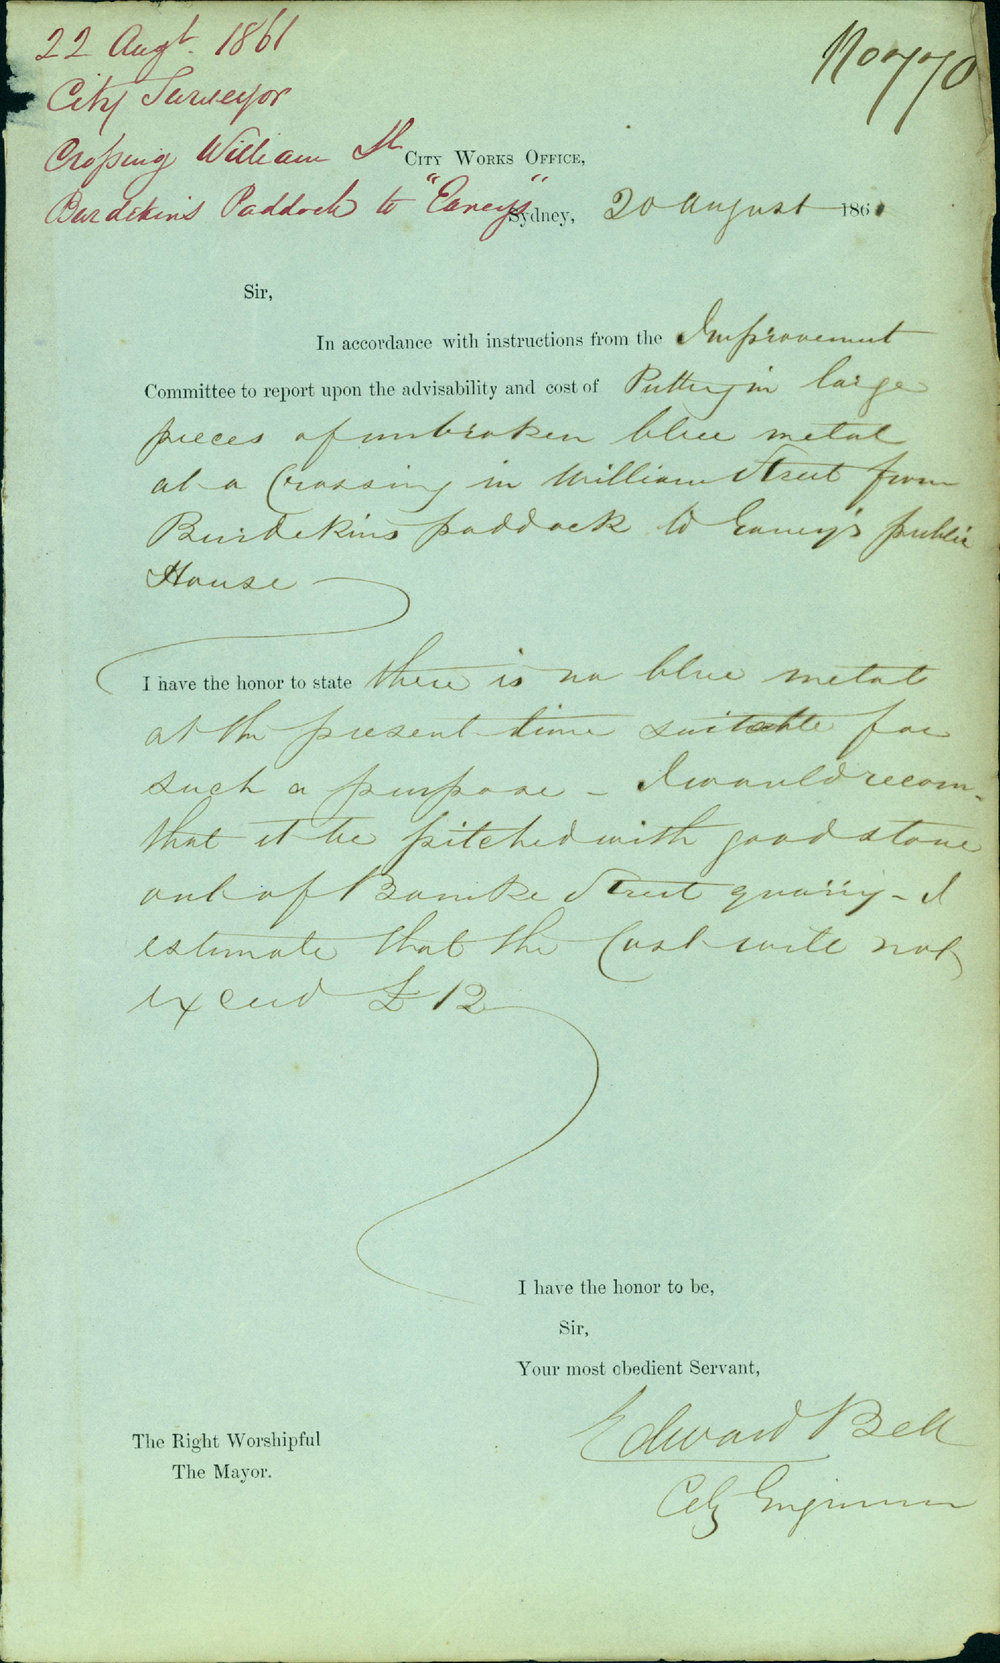 22 Augt. 1861
No 770
City Surveyor
Crossing William St
Burdekins Paddock to "Eaneys"
City Works Office,
Sydney, 20 August 1861
Sir,
In accordance with instructions from the Improvement
Committee to report upon the advisability and cost of Putting in large
pieces of unbroken blue metal
at a Crossing in William Street from
Burdekins paddock to Eaney's public
House
I have the honor to state there is no blue metal
at the present time suitable for
such a purpose - I would recom-
that it be pitched with good stone
out of Bourke Street quarry - I
estimate that the Cost will not
exceed £12
I have the honor to be,
Sir,
Your most obedient Servant,
Edward Bell
City Engineer
The Right Worshipful
The Mayor.